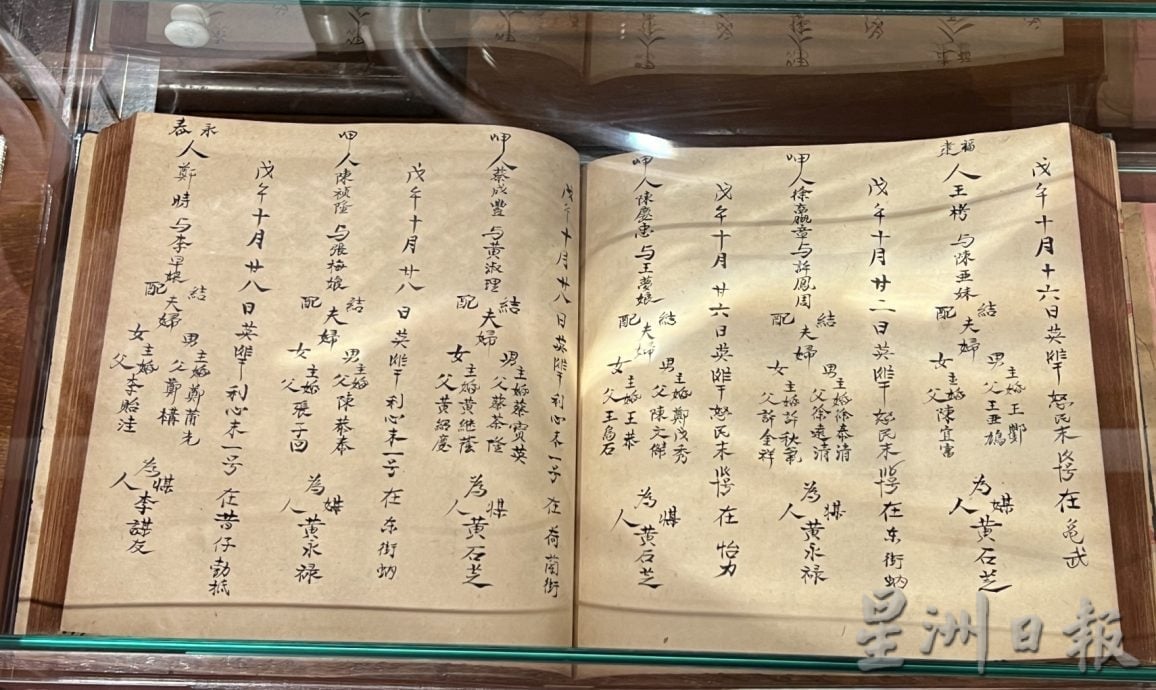 戊午十月十六日英怒民末在
福建人王栲与陳亜妹
結配夫婦
男主婚王鄭
父王亜鳩
女主婚
父陳宜富
為媒人黃石芝
戊午十月廿二日英怒民末在东街蚋
呷人徐嬴章与許鳳周
結配夫婦
男主婚徐泰清
父徐遠清
女主婚許秋氣
父許金祥
為媒人黃永禄
戊午十月廿六日英怒民末在怡力
呷人陳慶忠与王夢娘
結配夫婦
男主婚鄭成秀
父陳文傑
女主婚王恭
父王烏石
為媒人黃石芝
戊午十月廿八日英利心末一号在荷蘭街
呷人蔡成豐与黃淑理
結配夫婦
男主婚蔡寅英
父蔡茶隆
女主婚黃継蔭
父黃紹慶
為媒人黃石芝
戊午十月廿八日英利心末一号在东街蚋
呷人陳禎隆与張梅娘
結配夫婦
男主婚
父陳恭奉
女主婚
父張子凹
為媒人黃永禄
戊午十月廿八日英利心末一号在昔仔勃抵
永春人鄭時与李早娘
結配夫婦
男主婚鄭莆光
父鄭構
女主婚
父李貽洼
為媒人李謀友
星洲日報